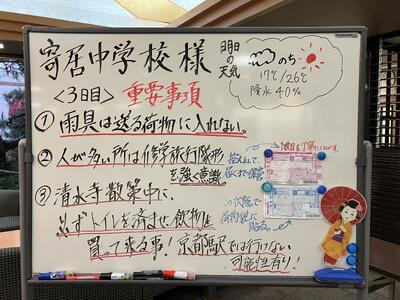 寄居中学校様
明日の天気
のち
17℃/26℃
降水40%
<3日目> 重要事項
① 雨具は送る荷物に入れない。
② 人が多い所は修学旅行隊形を強く意識。
③ 清水寺散策中に、
必ずトイレを済ませ飲物を
買って来る事！京都駅では行けない
可能性有り！
控えとして、
この状態で